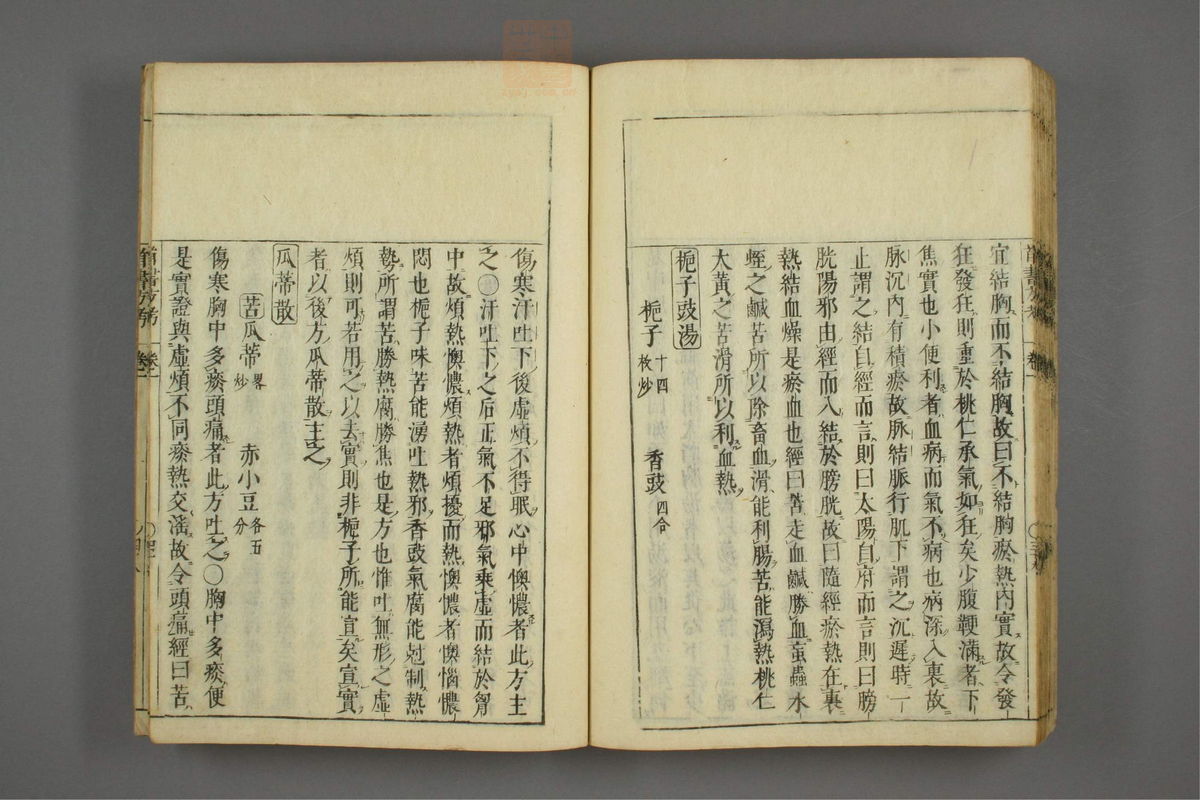 宜結胸而不結胸故曰不結胸瘀熱内實故令發
狂發狂則重於桃仁承氣如狂矣少腹鞕滿者下
焦實也小便利者血病而氣不病也病深入裏故
脉沉内有積瘀故脉結脈行肌下謂之沉遲時一
止謂之結自經而言則曰太陽自府而言則曰膀
胱陽邪由經而入結於膀胱故曰隨經瘀熱在裏
熱結血燥是瘀血也經曰苦走血鹹勝血䖟蟲水
蛭之鹹苦所以除畜血滑能利腸苦能瀉熱桃仁
大黄之苦滑所以利血熱
梔子豉湯
梔子十四枚炒 香豉四合
傷寒汗吐下後虛煩不得眠心中懊憹者此方主
之○汗吐下之后正氣不足邪氣乘虛而結於胷
中故煩熱懊憹煩熱者煩擾而熱懊憹者懊惱憹
悶也梔子味苦能湧吐熱邪香豉氣腐能尅制熱
勢所謂苦勝熱腐勝焦也是方也惟吐無形之虛
煩則可若用之以去實則非梔子所能宣矣宣實
者以後方瓜蒂散主之
瓜蒂散
苦瓜蒂畧炒 赤小豆各五分
傷寒胸中多痰頭痛者此方吐之○胸中多痰便
是實證與虛煩不同痰熱交滛故令頭痛經曰苦